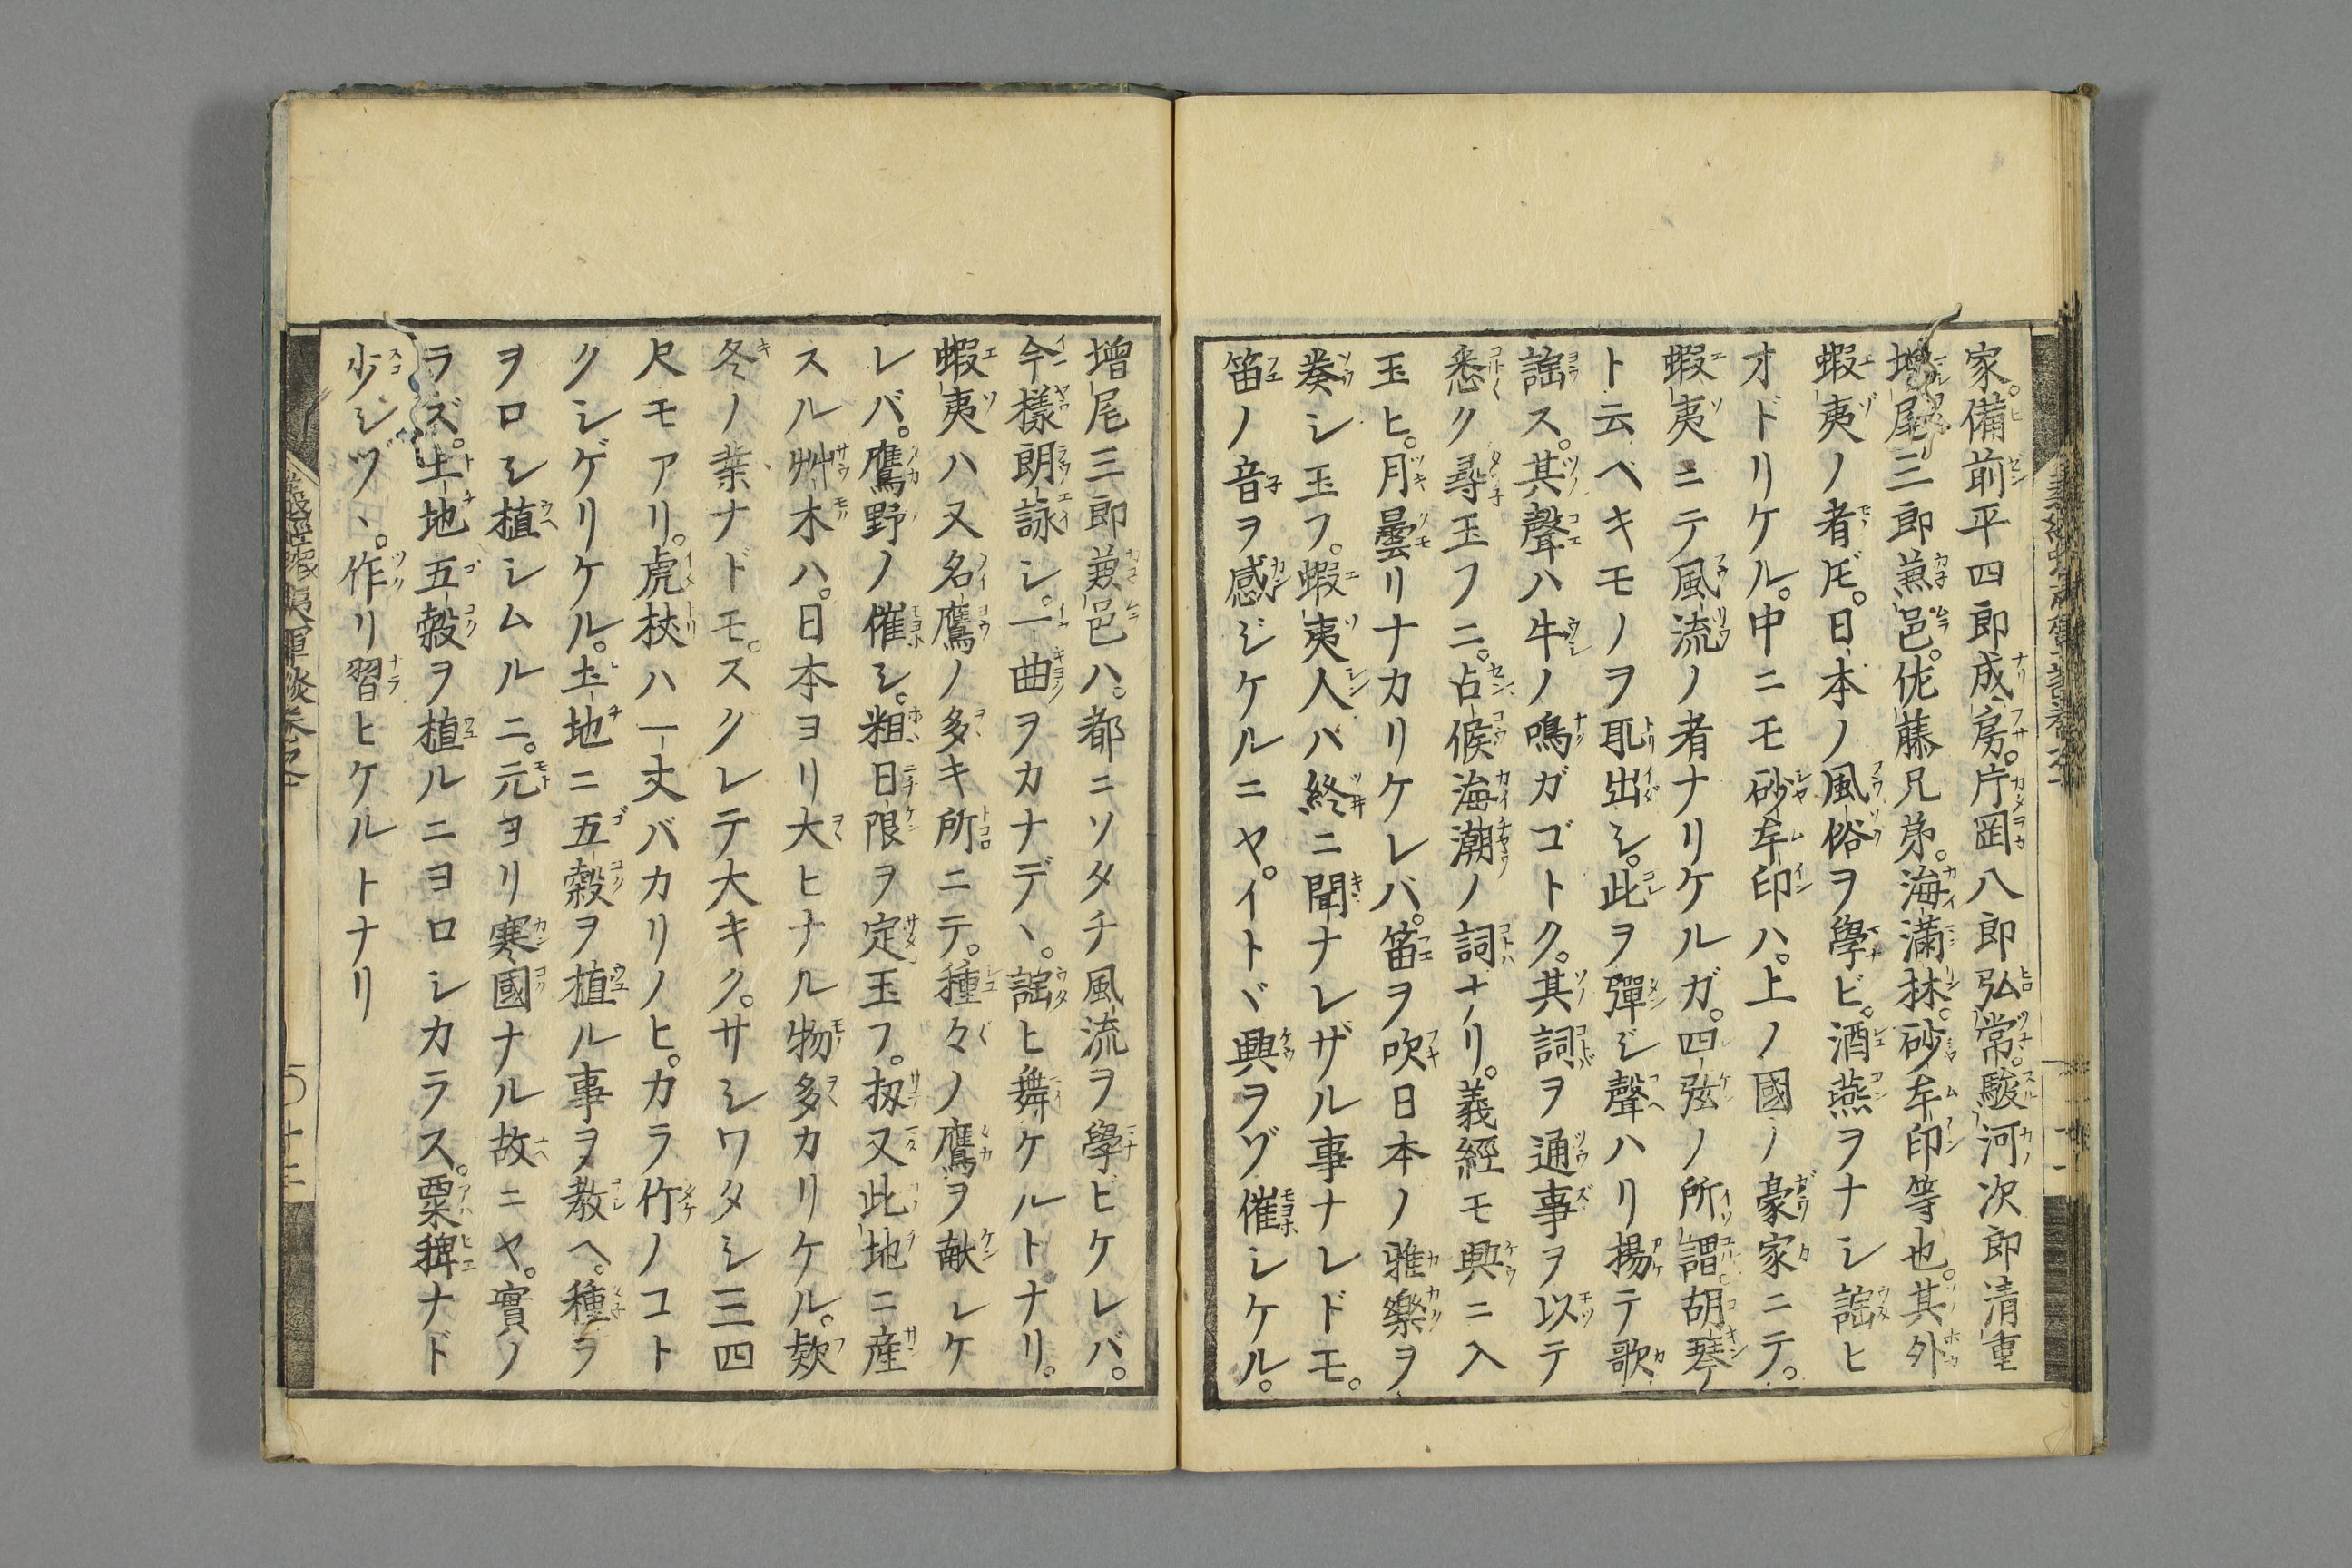 家。備前平四郎成房。片岡八郎弘常。駿河次郎清重
増尾三郎兼邑。佐藤兄弟。海満林。砂牟印等也。其外
蝦夷ノ者𪜈。日本ノ風俗ヲ學ビ。酒燕ヲナシ謡ヒ
オドリケル。中ニモ砂牟印ハ。上ノ國ノ豪家ニテ。
蝦夷ニテ風流ノ者ナリケルガ。四弦ノ所謂胡琴
ト云ベキモノヲ取出シ。此ヲ彈ジ聲ハリ揚テ歌
謡ス。其聲ハ牛ノ鳴ガゴトク。其詞ヲ通事ヲ以テ
悉ク尋玉フニ。占候海潮ノ詞ナリ。義經モ興ニ入
玉ヒ。月曇リナカリケレバ。笛ヲ吹日本ノ雅樂ヲ
奏シ玉フ。蝦夷人ハ終ニ聞ナレザル事ナレドモ。
笛ノ音ヲ感ジケルニヤ。イトヾ興ヲゾ催シケル。
増尾三郎兼邑ハ。都ニソタチ風流ヲ學ビケレバ。
今樣朗詠シ。一曲ヲカナデヽ。謡ヒ舞ケルトナリ。
蝦夷ハ又名鷹ノ多キ所ニテ。種々ノ鷹ヲ献レケ
レバ。鷹野ノ催シ。粗日限ヲ定玉フ。扨又此地ニ産
スル艸木ハ。日本ヨリ大ヒナル物多カリケル。欵
冬ノ葉ナドモ。スクレテ大キク。サシワタシ三四
尺モアリ。虎杖ハ一丈バカリノヒ。カラ竹ノコト
クシゲリケル。土地ニ五穀ヲ植ル事ヲ教ヘ。種ヲ
ヲロシ植シムルニ。元ヨリ寒國ナル故ニヤ。實ノ
ラズ。土地五穀ヲ植ルニヨロシカラス。粟稗ナド
少シヅヽ。作リ習ヒケルトナリ